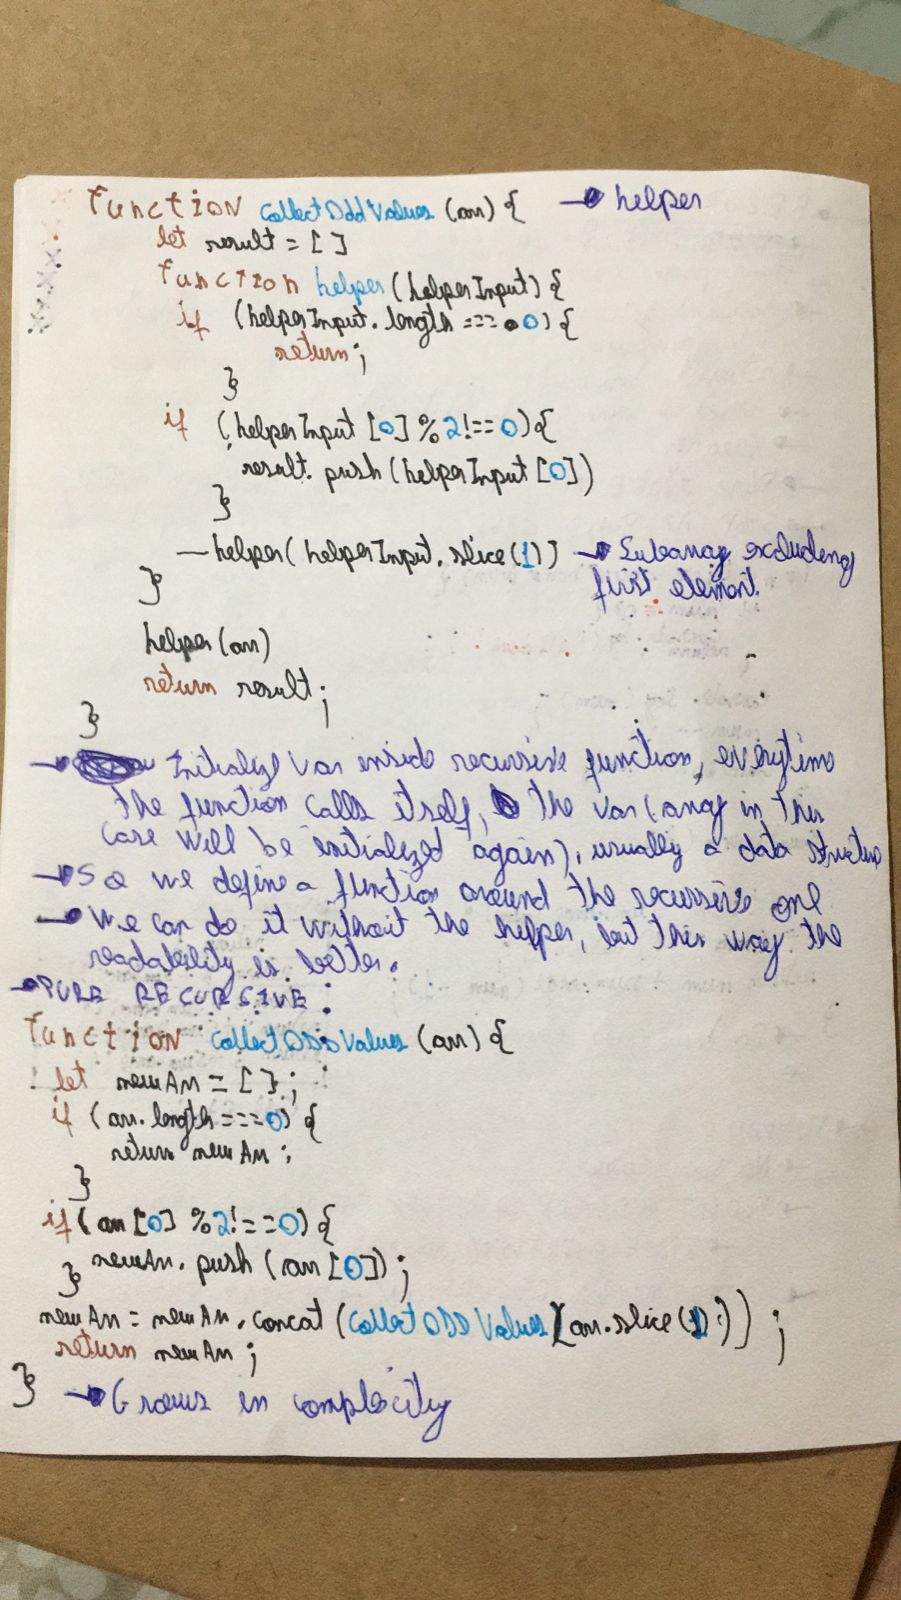 function collectOddValues (arr) { → helper
let result = [ ]
function helper (helperInput) {
if (helperInput.length === 0) {
return;
}
if (helperInput [0] % 2 !== 0) {
result. push (helperInput [0])
}
helper( helperInput. slice (1)) → Subarray excluding
first element.
}
helper (arr)
return result;
}
→ Initialize var inside recursive function, everytime
the function calls itself, the var (array in this
case will be initialized again), usually a data structure
→ So we define a function around the recursive one
→ We can do it without the helper, but this way the
readability is better.
→ PURE RECURSIVE:
function collectODDValues (arr) {
let newArr = [ ];
if (arr.length === 0) {
return newArr;
}
if (arr [0] % 2 !== 0) {
newArr. push (arr [0]);
}
newArr = newArr. concat (collectODDValues (arr.slice (1)));
return newArr;
} → Grows in complecity